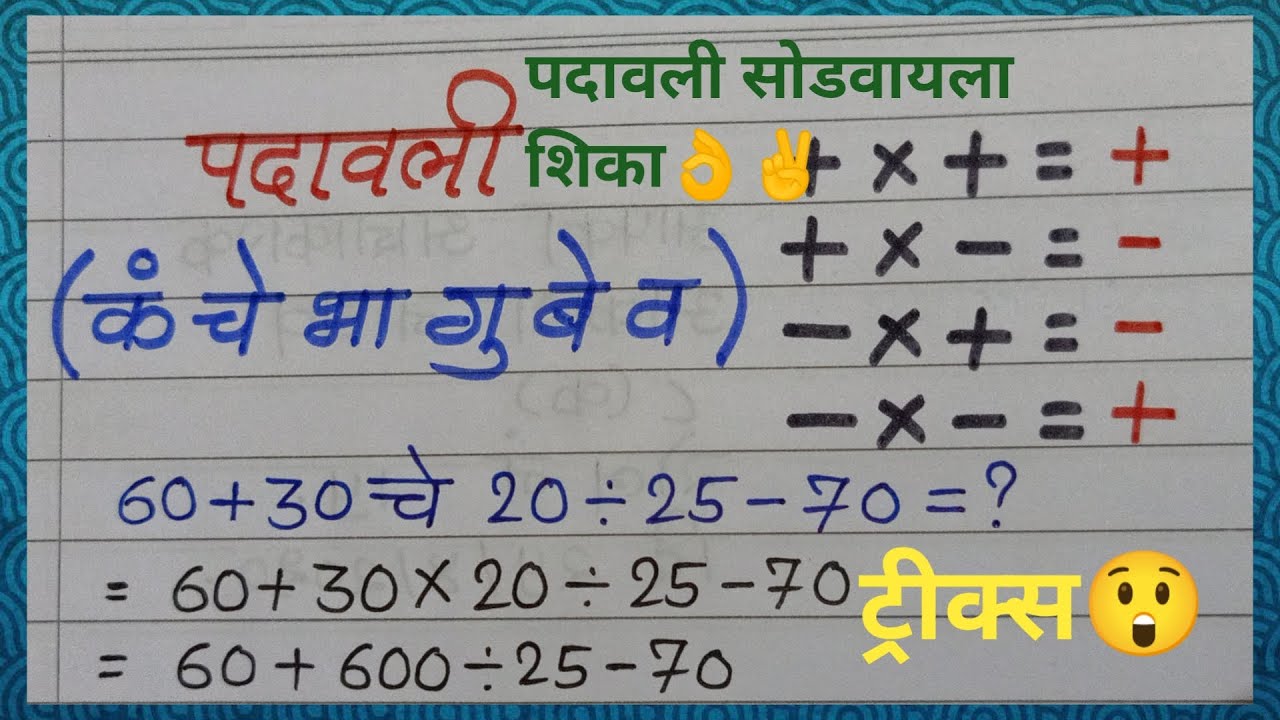 पदावली सोडवायला
शिका👌✌
पदावली
+ × + = +
+ × - = -
- × + = -
- × - = +
(कं चे भा गु बे व)
60+30 चे 20÷25-70=?
= 60+30×20÷25-70
= 60+600÷25-70
ट्रीक्स😲